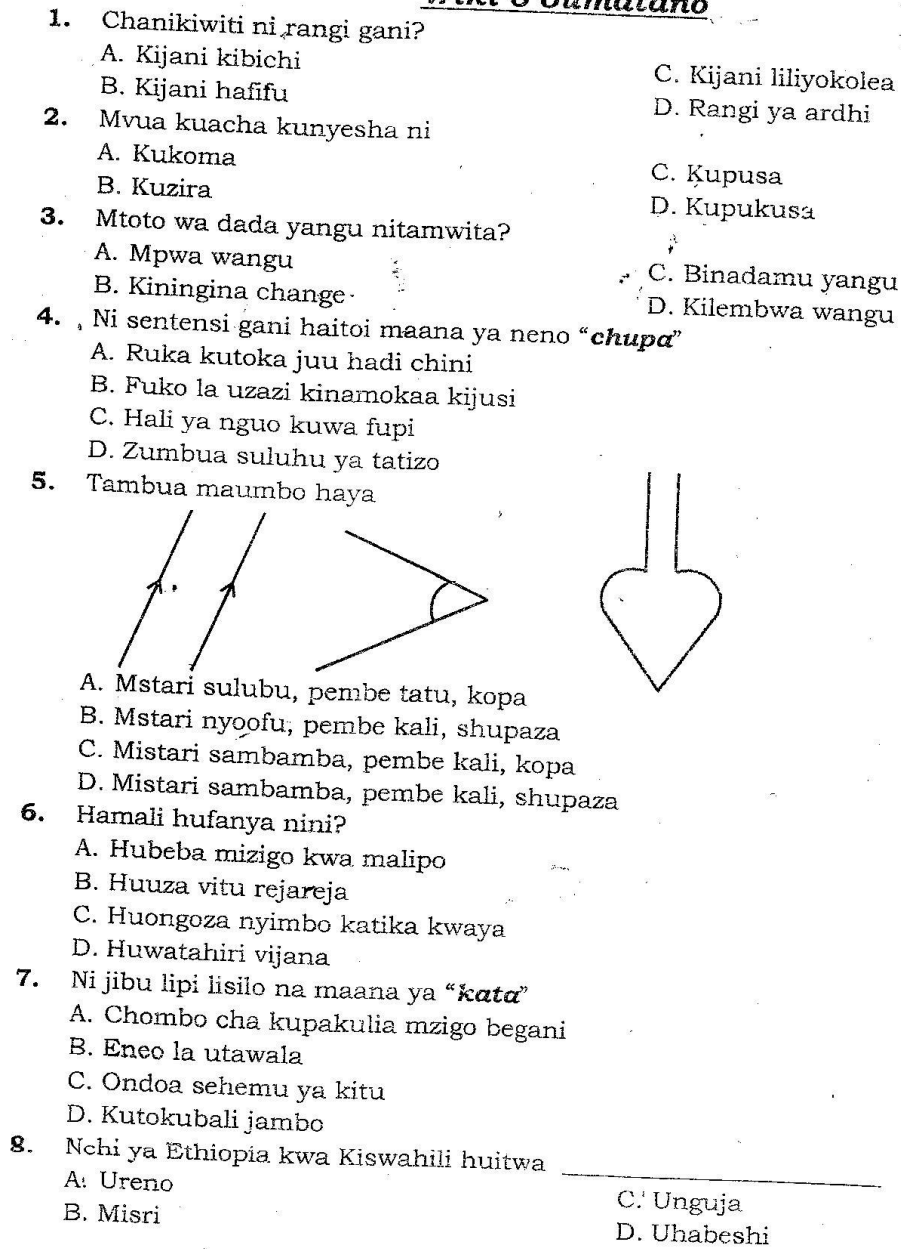 1. Chanikiwiti ni rangi gani?
A. Kijani kibichi
B. Kijani hafifu
C. Kijani liliyokolea
D. Rangi ya ardhi
2. Mvua kuacha kunyesha ni
A. Kukoma
B. Kuzira
C. Kupusa
D. Kupukusa
3. Mtoto wa dada yangu nitamwita?
A. Mpwa wangu
B. Kiningina change
C. Binadamu yangu
D. Kilembwa wangu
4. Ni sentensi gani haitoi maana ya neno “chupa”
A. Ruka kutoka juu hadi chini
B. Fuko la uzazi kinamokaa kijusi
C. Hali ya nguo kuwa fupi
D. Zumbua suluhu ya tatizo
5. Tambua maumbo haya
A. Mstari sulubu, pembe tatu, kopa
B. Mstari nyoofu, pembe kali, shupaza
C. Mistari sambamba, pembe kali, kopa
D. Mistari sambamba, pembe kali, shupaza
6. Hamali hufanya nini?
A. Hubeba mizigo kwa malipo
B. Huuza vitu rejareja
C. Huongoza nyimbo katika kwaya
D. Huwatahiri vijana
7. Ni jibu lipi lisilo na maana ya “kata”
A. Chombo cha kupakulia mzigo begani
B. Eneo la utawala
C. Ondoa sehemu ya kitu
D. Kutokubali jambo
8. Nchi ya Ethiopia kwa Kiswahili huitwa
A. Ureno
B. Misri
C. Unguja
D. Uhabeshi